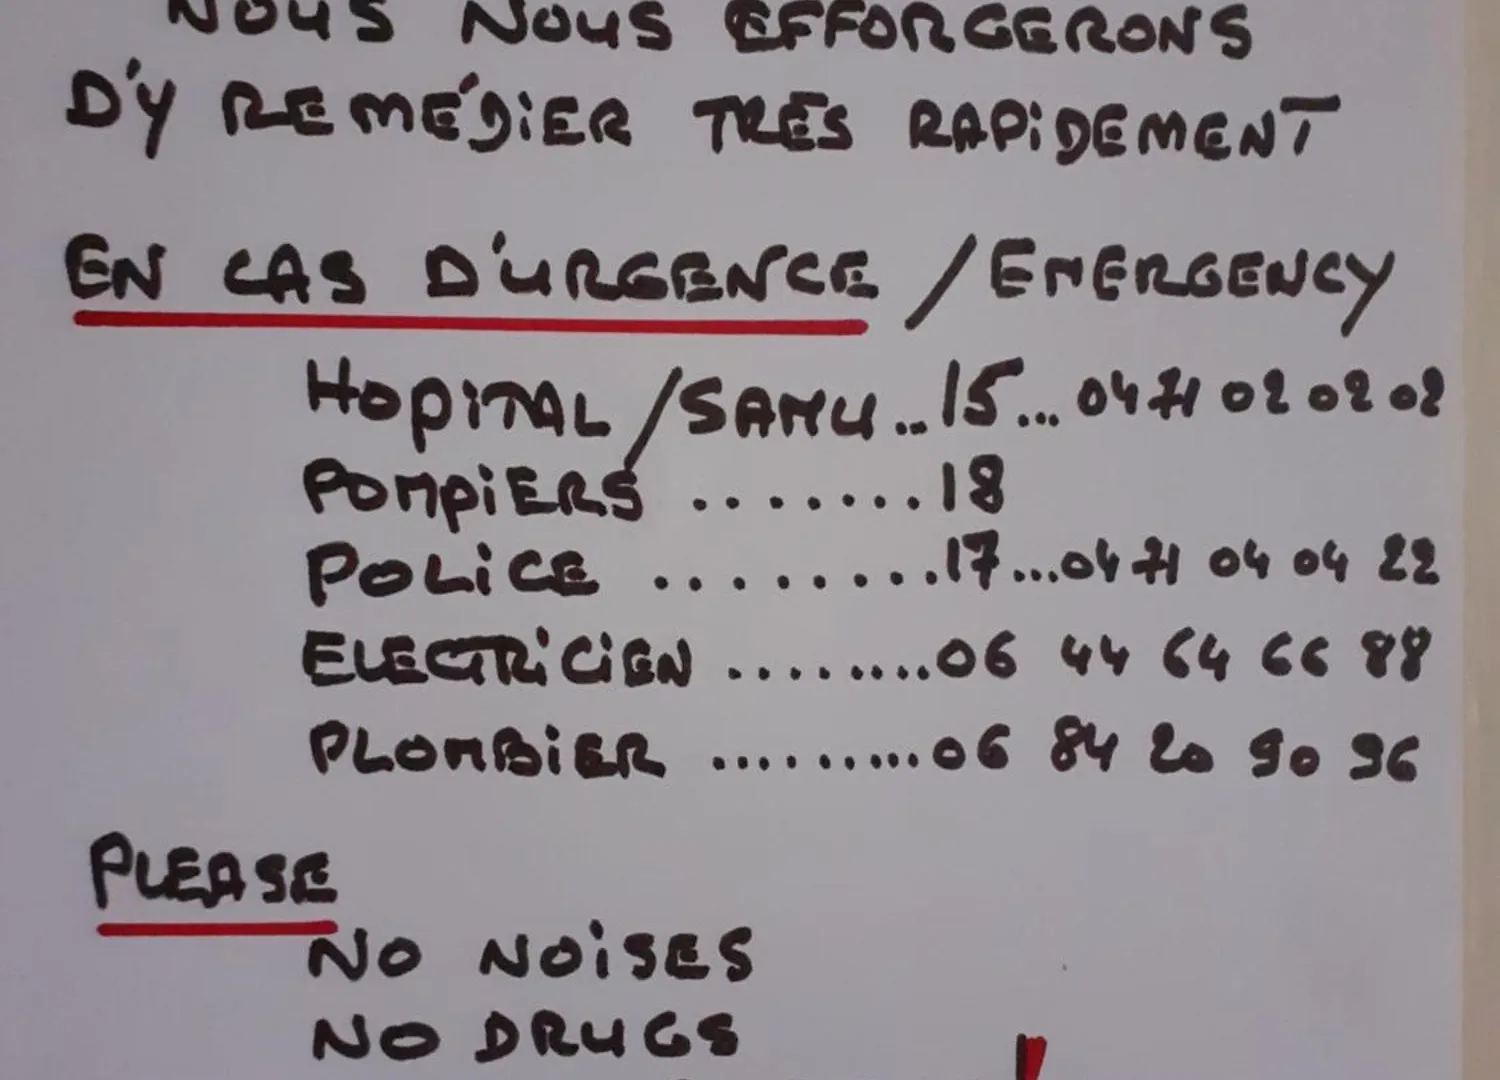 NOUS NOUS EFFORCERONS
D'Y REMÉDIER TRÉS RAPIDEMENT
EN CAS D'URGENCE / EMERGENCY
HOPITAL / SAMU .. 15 ... 04 71 02 02 02
POMPIERS ....... 18
POLICE ......... 17 ... 04 71 04 04 22
ELECTRICIEN ........ 06 44 64 66 88
PLOMBIER ......... 06 84 20 90 96
PLEASE
NO NOISES
NO DRUGS